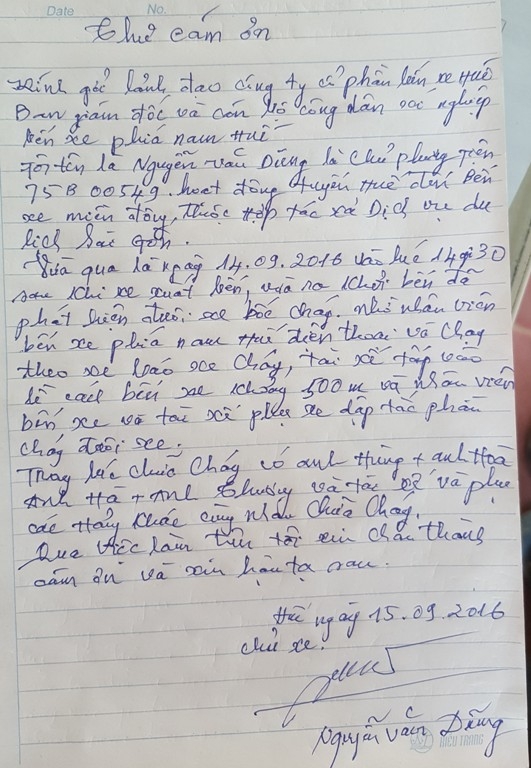 Date No.
Thư cảm ơn
Kính gởi lảnh đạo công ty cổ phần bến xe Huế
Ban giám đốc và cán bộ công dân xí nghiệp
bến xe phiá nam Huế
Tôi tên là Nguyễn Văn Dũng là chủ phương tiện
75B 00549. hoạt động tuyến Huế đến Bến
xe miền đông, thuộc Hợp tác xả Dịch vụ du
lịch Sài Gòn.
Vừa qua là ngày 14.09.2016 vào lúc 14 giờ 30
sau khi xe xuất bến, vừa ra khỏi bến đã
phát hiện dưới xe bốc cháy. nhờ nhân viên
bến xe phiá nam Huế điện thoại và chạy
theo xe báo xe cháy, tài xế tấp vào
lề cách bến xe khoảng 500m và nhân viên
bến xe và tài xế phụ xe dập tắc phần
cháy dưới xe.
Trong lực chửa cháy có anh Hùng + anh Hoà
Anh Hà + Anh Chương và tài xế và phụ
các hảng khác cùng nhau chửa cháy.
Qua việc làm trên tôi xin chân thành
cảm ơn và xin hậu tạ sau.
Huế ngày 15.09.2016
chủ xe.
Nguyễn Văn Dũng